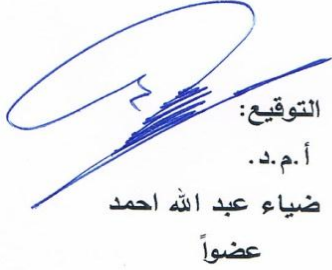 التوقيع:
أ.م.د.
ضياء عبد الله احمد
عضواً